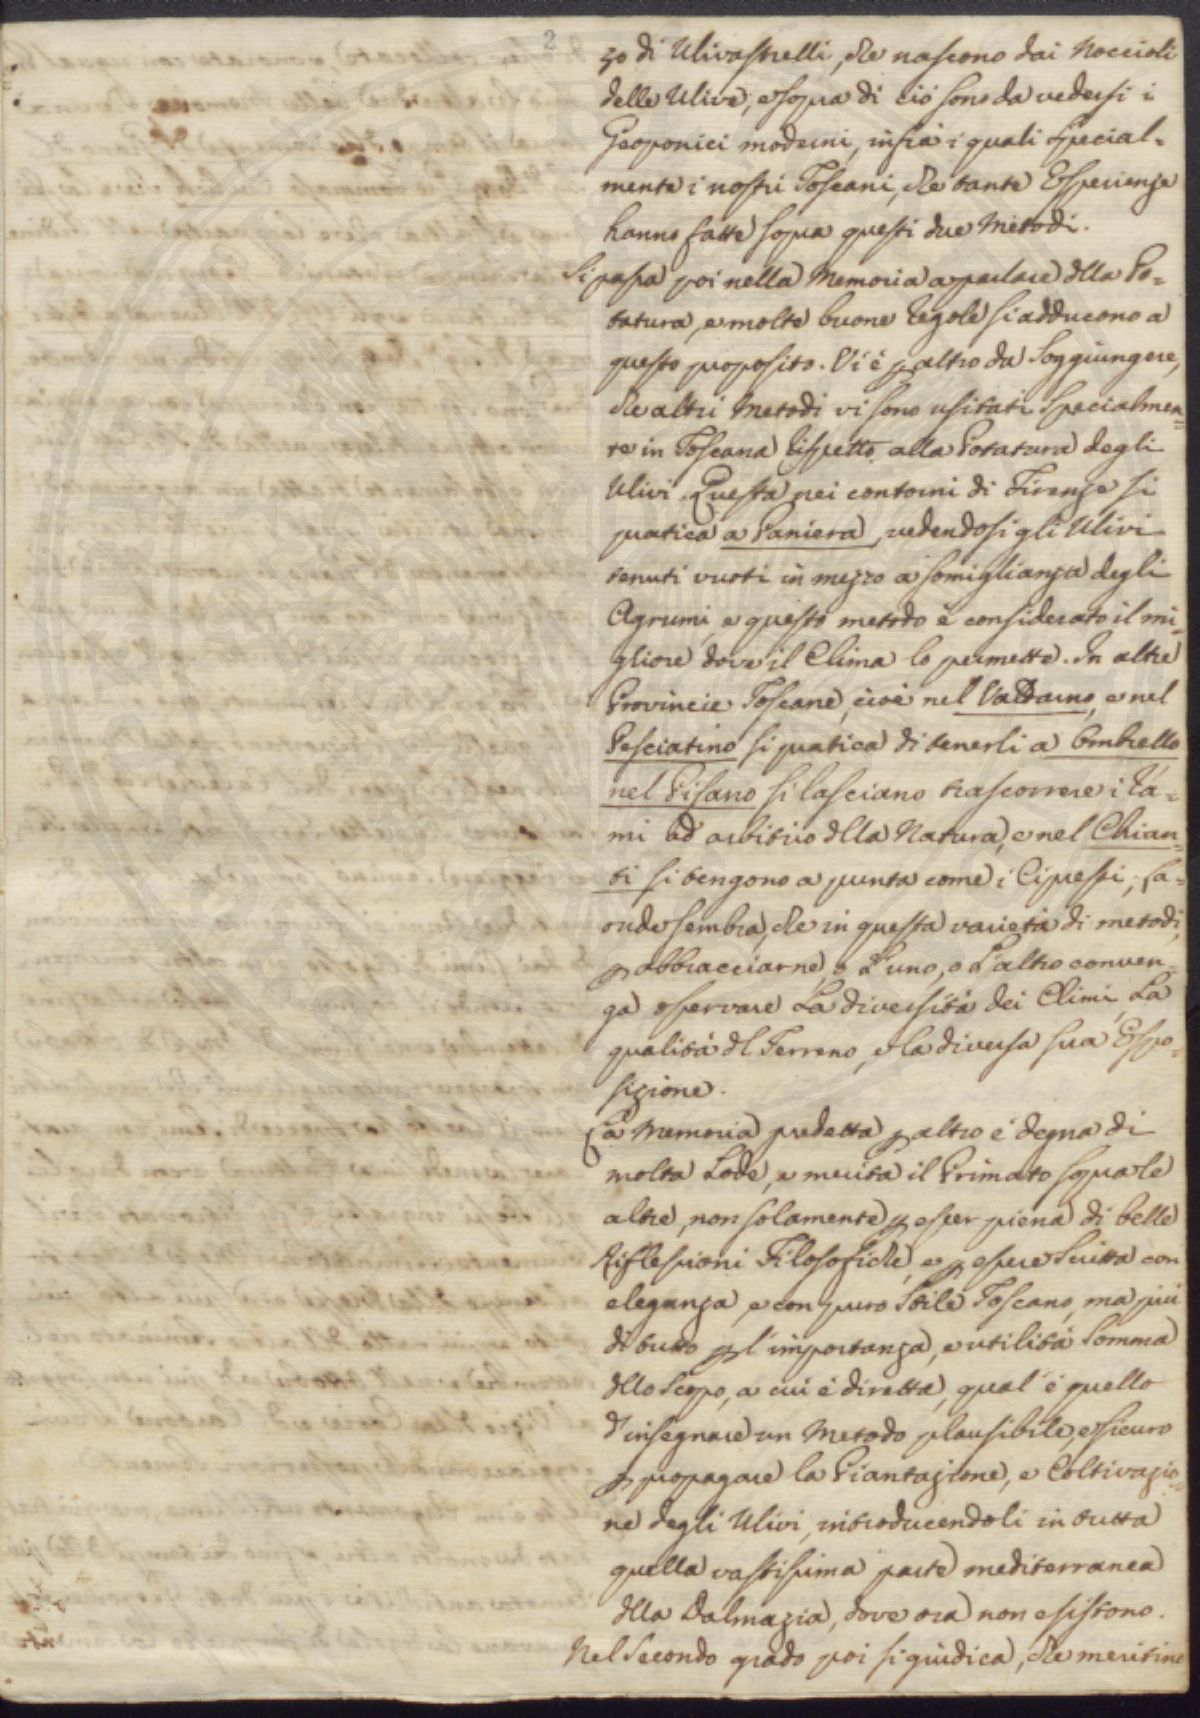 2
zo di Ulivastrelli, che nascono dai Noccioli
delle Ulive; e sopra di ciò sono da vedersi i
Geoponici moderni, infra i quali special-
mente i nostri Toscani, che tante Esperienze
hanno fatte sopra questi due Metodi.
Si passa poi nella Memoria a parlare dlla Po-
tatura, e molte buone regole si adducono a
questo proposito. Vi è p altro da Soggiungere,
che altri Metodi vi sono usitati Specialmen-
te in Toscana rispetto alla Potatura degli
Ulivi. Questa nei contorni di Firenze si
pratica a Paniera, vedendosi gli Ulivi
tenuti vuoti in mezzo a somiglianza degli
Agrumi, e questo metodo è considerato il mi-
gliore dove il Clima lo permette. In altre
Provincie Toscane, cioè nel Valdarno, e nel
Pesciatino si pratica di tenerli a Ombrello
nel Pisano si lasciano trascorrere i ra-
mi ad arbitrio dlla Natura, e nel Chian-
ti si tengono a punta come i Cipressi; La-
onde sembra, che in questa varietà di metodi,
p abbracciarne, o L'uno, o L'altro conven-
ga osservare La diversità dei Climi, La
qualità dl Terreno, e la diversa sua Espo-
sizione.
La Memoria predetta p altro è degna di
molta Lode, e merita il Primato sopra le
altre, non solamente p esser piena di belle
riflessioni Filosofiche, e p essere Scritta con
eleganza, e con puro Stile Toscano, ma più
di tutto p l'importanza, e utilità Somma
dllo Scopo, a cui è diretta, qual' è quello
d'insegnare un Metodo plausibile, e sicuro
p propagare la Piantazione, e Coltivazio-
ne degli Ulivi, introducendoli in tutta
quella vastissima parte mediterranea
dlla Dalmazia, dove ora non esistono.
Nel Secondo grado poi si giudica, che meritino